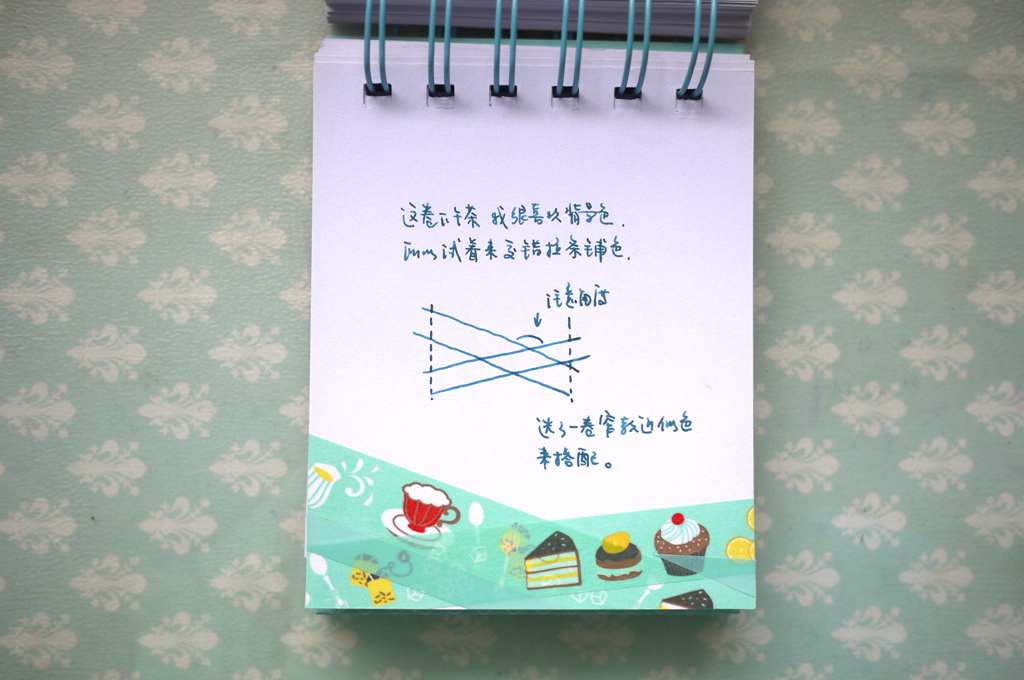 这卷下午茶 我很喜欢背景色.
所以试着来交错拉条铺色.
注意角度
选了一卷窄款近似色
来搭配。